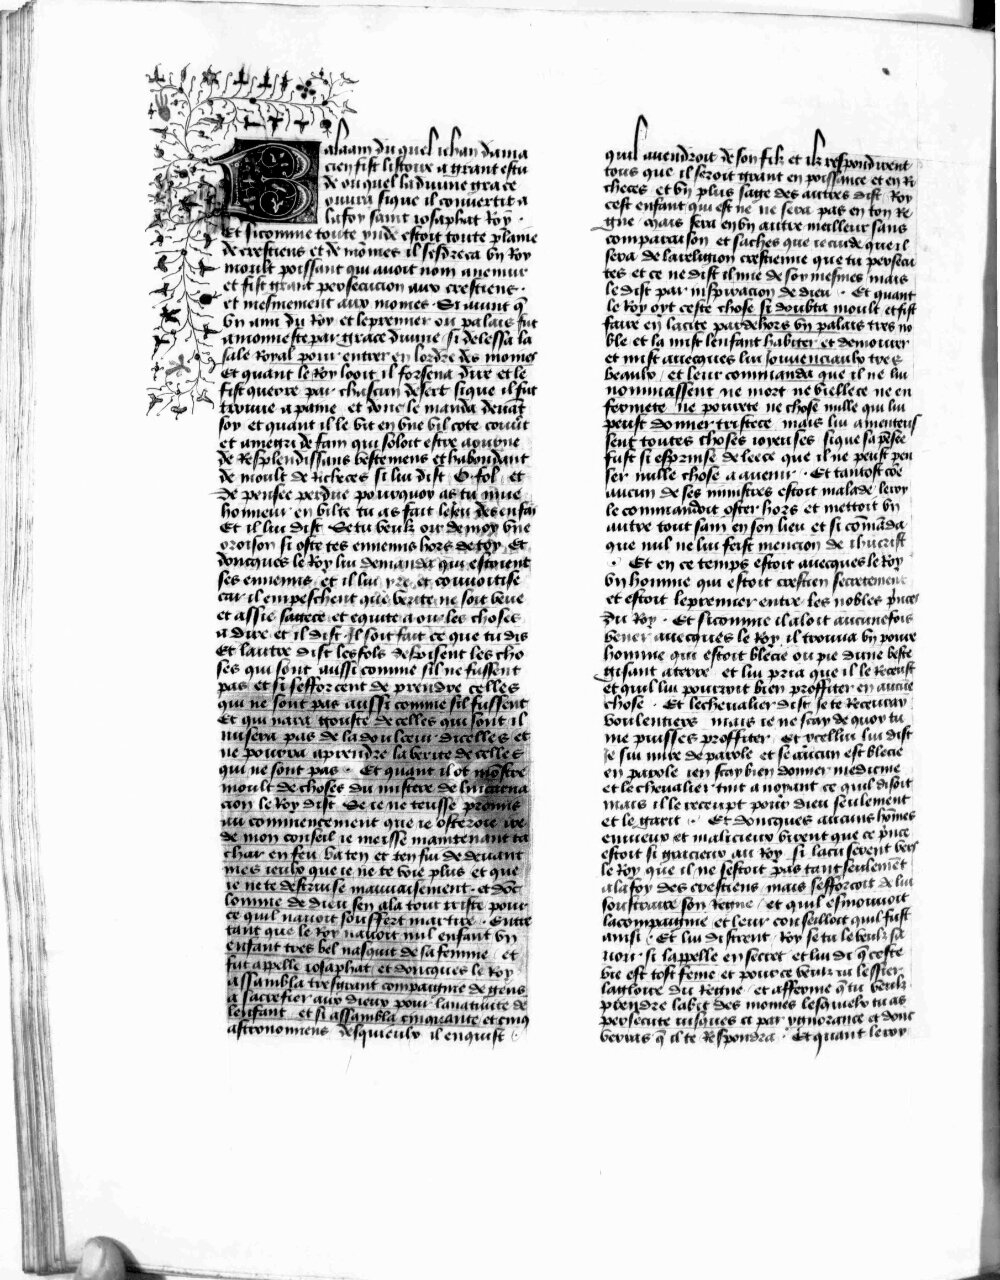 Balaam du quel iehan dama
cien fist listoire a grant estu
de ou quel la diuine grace
ouura si que il conuertit a
la foy saint iosaphat Roy ·
Et si comme toute ynde estoit toute plaine
de crestiens et de moines il sesdreca vn Roy
moult poissant qui auoit nom auenuir
et fist grant persecucion aux crestiens ·
et mesmement aux moines · Si auint q̄
vn ami du Roy et le premier ou palais fut
amonneste par grace diuine si delessa la
sale Royal pour entrer en lordre des moines
Et quant le Roy looit il forsena dire et le
fist querre par chascun desert si que il fut
trouue a paine et donc le manda deuāt
soy et quant il le vit en vne vil cote couūt
et amegri de fain qui soloit estre aourne
de Resplendissans vestemens et habondant
de moult de Richeces si lui dist O fol et
de pensee perdue pourquoy as tu mue
honneur en vilte tu as fait le ieu des enfās
Et il lui dist Se tu veulx oir de moy vne
oroison si oste tes ennemis hors de toy Et
doncques le Roy lui demanda qui estoient
ses ennemis et il lui yre et conuoitise
car il empeschent que verite ne soit veue
et assie sagece et equite a oir les choses
a dire et il dist Il soit fait ce que tu dis
Et lautre dist les fols despisent les cho
ses qui sont aussi comme sil ne fussent
pas et si sefforcent de prendre celles
qui ne sont pas aussi comme sil fussent
Et qui naura gouste de celles qui sont il
nusera pas de la doulceur dicelles et
ne pourra aprendre la verite de celles
qui ne sont pas · Et quant il ot mōstre
moult de choses du mistere de lincarna
cion le Roy dist Se ie ne teusse promis
au commencement que ie osteroie ire
de mon conseil ie meisse maintenant ta
char en feu va ten et ten fui de deuant
mes ieulx que ie ne te voie plus et que
ie ne te destruise mauuaisement · et dōc
lomme de dieu sen ala tout triste pour
ce quil nauoit souffert martire · Entre
tant que le Roy nauoit nul enfant vn
enfant tres bel nasquit de sa femme et
fut appelle iosaphat et doncques le Roy
assambla tresgrant compaignie de gens
a sacrefier aux dieux pour la natiuite de
lenfant et si assambla cinquante et cinq
astronomiens desquieulx il enquist
quil auendroit de son filz et ilz respondirent
tous que il seroit grant en poissance et en Ri
checes et vn plus sage des autres dist Roy
cest enfant qui est ne ne sera pas en ton Re
gne mais sera en vn autre meilleur sans
comparaison et saches que ie cuide que il
sera de la religion crestienne que tu persecu
tes et ce ne dist il mie de soy mesmes mais
le dist par inspiracion de dieu · Et quant
le Roy oyt ceste chose si doubta moult et fist
faire en la cite par dehors vn palais tres no
ble et la mist lenfant habiter et demourer
et mist auecques lui iouuenciaulx tres
beaulx et leur commanda que il ne lui
nommassent ne mort ne viellece ne en
fermete ne pourete ne chose nulle qui lui
peust donner tristece mais lui amenteus
sent toutes choses ioieuses si que sa pēsee
fust si esprinse de leece que il ne peust pen
ser nulle chose a auenir · Et tantost cōe
aucun de ses ministres estoit malade le roy
le commandoit oster hors et mettoit vn
autre tout sain en son lieu et si cōmāda
que nul ne lui feist mencion de ihucrist
· Et en ce temps estoit auecques le Roy
vn homme qui estoit crestien secretement
et estoit le premier entre les nobles princes
du Roy · Et si comme il aloit aucunefois
vener auecques le Roy il trouua vn poure
homme qui estoit blecie ou pie dune beste
gisant a terre et lui pria que il le Receust
et quil lui pourroit bien proffiter en aucūe
chose · Et le chevalier dist Ie te Receuray
voulentiers mais ie ne scay de quoy tu
me puisses proffiter Et icellui lui dist
Ie sui mire de parole et se aucun est blecie
en parole ien scay bien donner medicine
et le cheualier tint a noyant ce quil disoit
mais il le receupt pour dieu seulement
et le garit · Et doncques aucuns hōmes
enuieux et malicieux virent que ce prīce
estoit si gracieux au Roy si lacuserent vers
le Roy que il ne sestoit pas tant seulemēt
a la foy des crestiens mais sefforcoit de lui
soustraire son Regne et quil esmouuoit
la compaignie et leur conseilloit quil fust
ainsi · Et lui distrent Roy se tu le veulx sa
uoir si lappelle en secret et lui di q̄ ceste
vie est tost finee et pour ce veulx tu lessier
la gloire du Regne et afferme q̄ tu veulx
prendre labit des moines lesquieulx tu as
persecute iusques ci par ygnorance et donc
verras q̄ il te Respondra · Et quant le roy